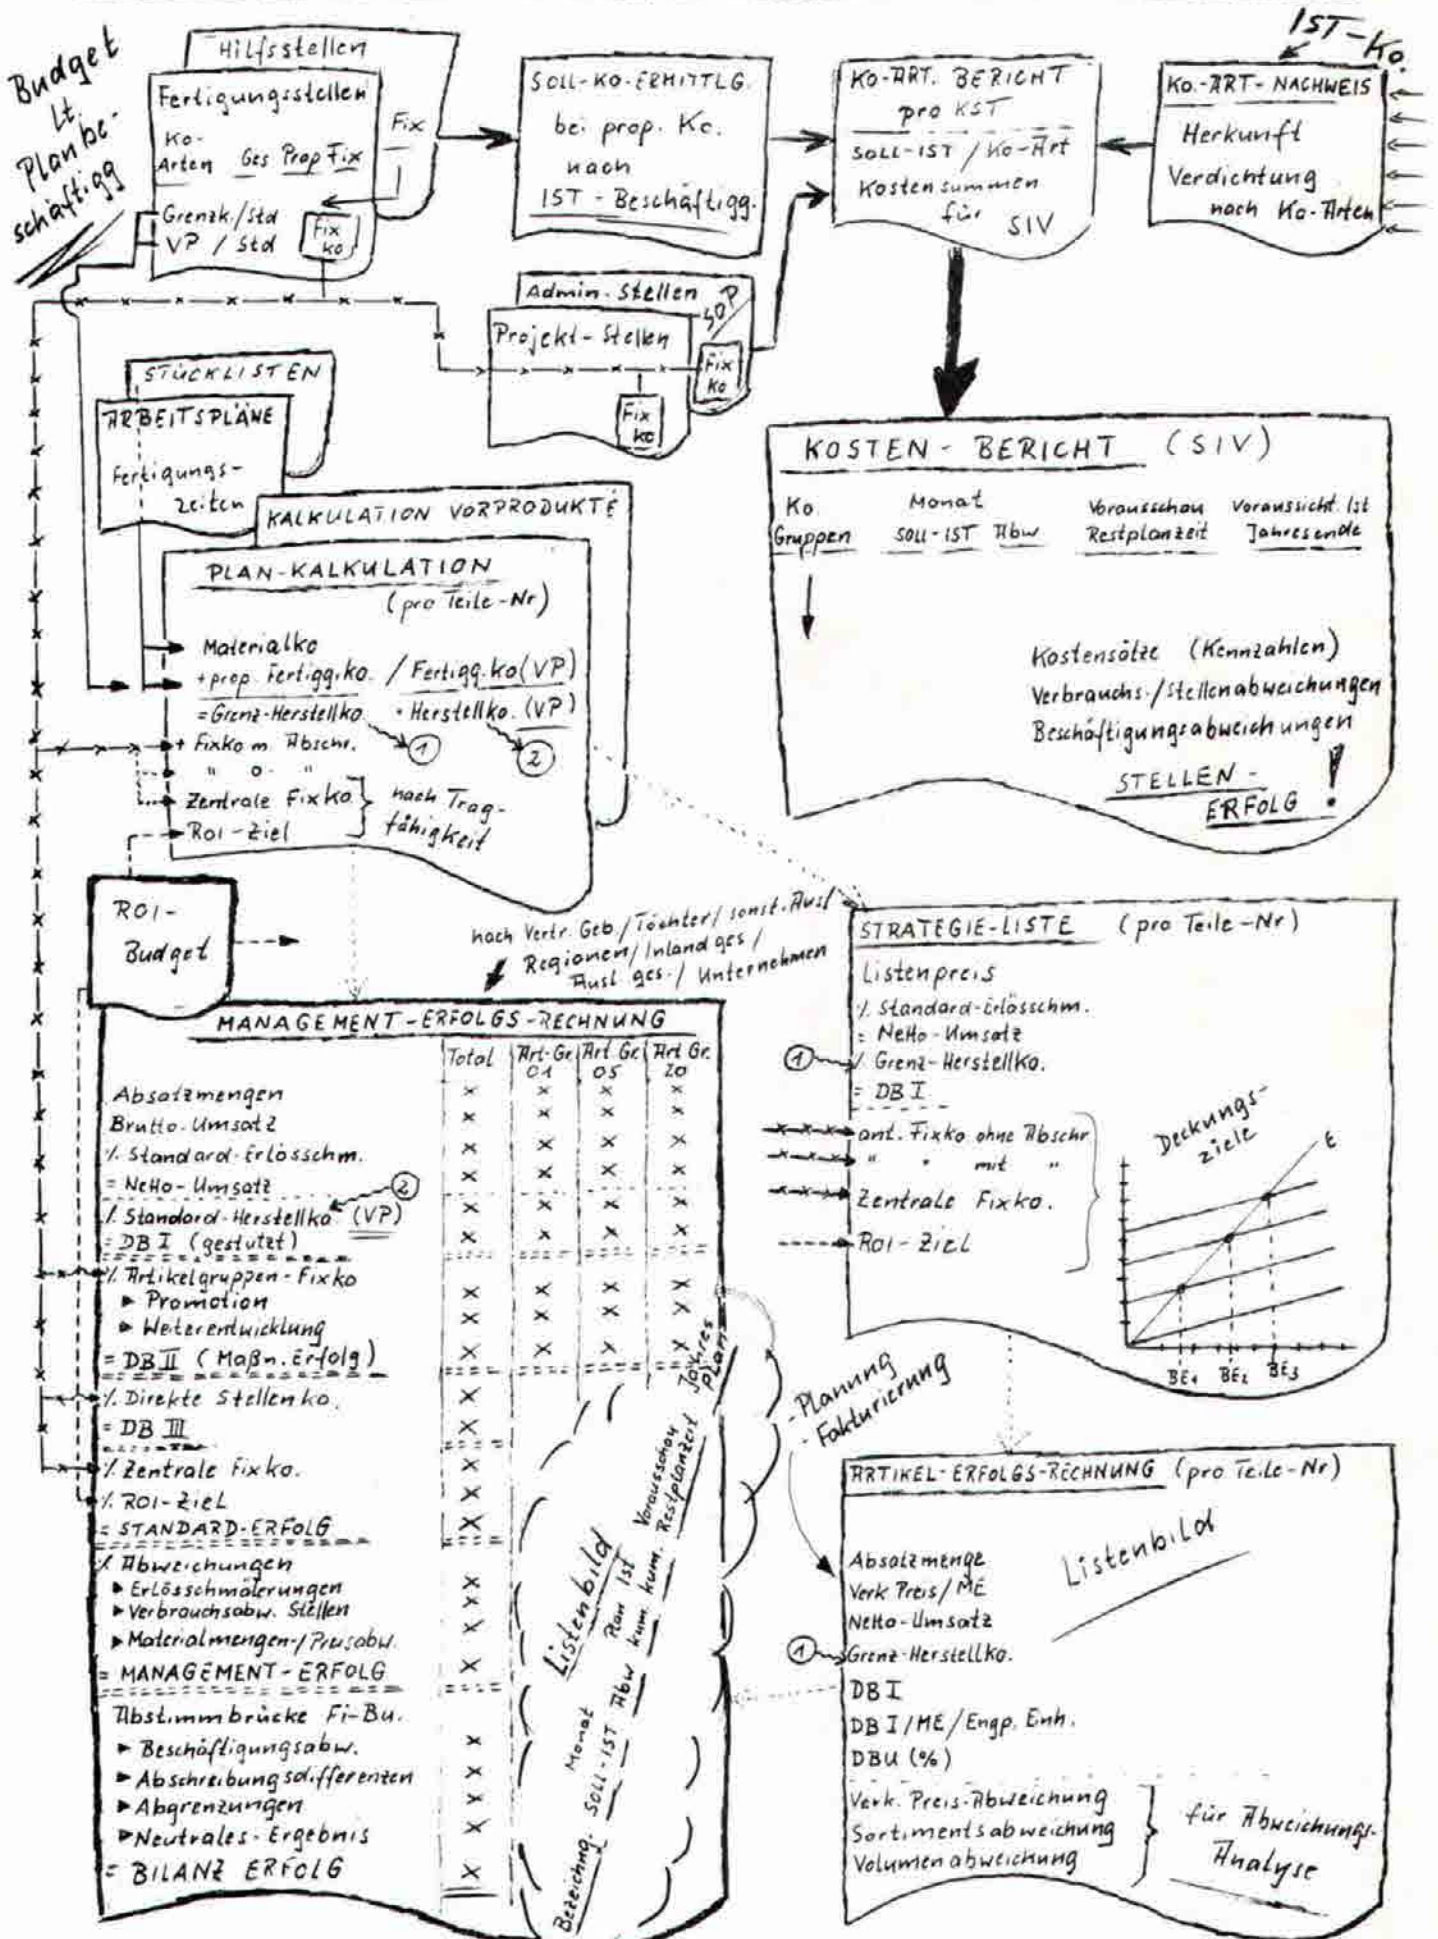 Budget
Lt.
Planbe-
schäftigg
Hilfsstellen
Fertigungsstellen
Ko-
Arten Ges Prop Fix
Fix
Grenzk./Std
VP / Std
Fix
ko
SOLL-KO-ERMITTLG.
bei prop. Ko.
nach
IST-Beschäftigg.
KO-ART. BERICHT
pro KST
SOLL-IST / Ko-Art
Kostensummen
für SIV
IST-Ko.
KO.-ART-NACHWEIS
Herkunft
Verdichtung
nach Ko-Arten
Admin-Stellen
SOP
Projekt-Stellen
Fix
ko
Fix
ko
STÜCKLISTEN
ARBEITSPLÄNE
Fertigungs-
zeiten
KALKULATION VORPRODUKTE
PLAN-KALKULATION
(pro Teile-Nr)
Materialko
+prop. Fertigg.ko. / Fertigg.ko(VP)
=Grenz-Herstellko. • Herstellko. (VP)
+ Fixko m. Abschr. 1 2
" o. "
Zentrale Fixko } nach Trag-
ROI-Ziel fähigkeit
KOSTEN-BERICHT (SIV)
Ko. Monat Vorausschau Voraussicht. Ist
Gruppen SOLL-IST Abw Restplanzeit Jahresende
Kostensätze (Kennzahlen)
Verbrauchs-/Stellenabweichungen
Beschäftigungsabweichungen
STELLEN-
ERFOLG !
ROI-
Budget
nach Vertr. Geb./Töchter/sonst.Ausl
Regionen/Inland ges/
Ausl ges./Unternehmen
MANAGEMENT-ERFOLGS-RECHNUNG
Total Art-Gr. Art Gr. Art Gr.
01 05 20
Absatzmengen x x x x
Brutto-Umsatz x x x x
./. Standard-Erlösschm. x x x x
= Netto-Umsatz x x x x
2
./. Standard-Herstellko. (VP) x x x x
= DB I (gestutzt) x x x x
./. Artikelgruppen-Fixko x x x x
▸ Promotion x x x x
▸ Weiterentwicklung
= DB II (Maßn.Erfolg) x x x x
./. Direkte Stellenko. x
= DB III x
./. Zentrale Fixko. x
./. ROI-Ziel x
= STANDARD-ERFOLG x
./. Abweichungen
▸ Erlösschmälerungen x
▸ Verbrauchsabw. Stellen x
▸ Materialmengen-/Preisabw. x
= MANAGEMENT-ERFOLG x
Abstimmbrücke Fi-Bu.
▸ Beschäftigungsabw. x
▸ Abschreibungsdifferenzen x
▸ Abgrenzungen x
▸ Neutrales-Ergebnis x
= BILANZ ERFOLG x
Listenbild
Bezeichng. Monat SOLL-IST Abw
Plan Ist
kum. kum.
Vorausschau
Restplanzeit
Jahres
plan
STRATEGIE-LISTE (pro Teile-Nr)
Listenpreis
./. Standard-Erlösschm.
= Netto-Umsatz
1 ./. Grenz-Herstellko.
= DB I
ant. Fixko ohne Abschr
" " mit "
Zentrale Fixko.
ROI-Ziel
Deckungs-
ziele
E
BE1 BE2 BE3
- Planung
- Fakturierung
ARTIKEL-ERFOLGS-RECHNUNG (pro Teile-Nr)
Listenbild
Absatzmenge
Verk Preis/ME
Netto-Umsatz
1 Grenz-Herstellko.
DB I
DB I/ME/Engp. Enh.
DBU (%)
Verk. Preis-Abweichung
Sortimentsabweichung
Volumenabweichung
für Abweichungs-
Analyse